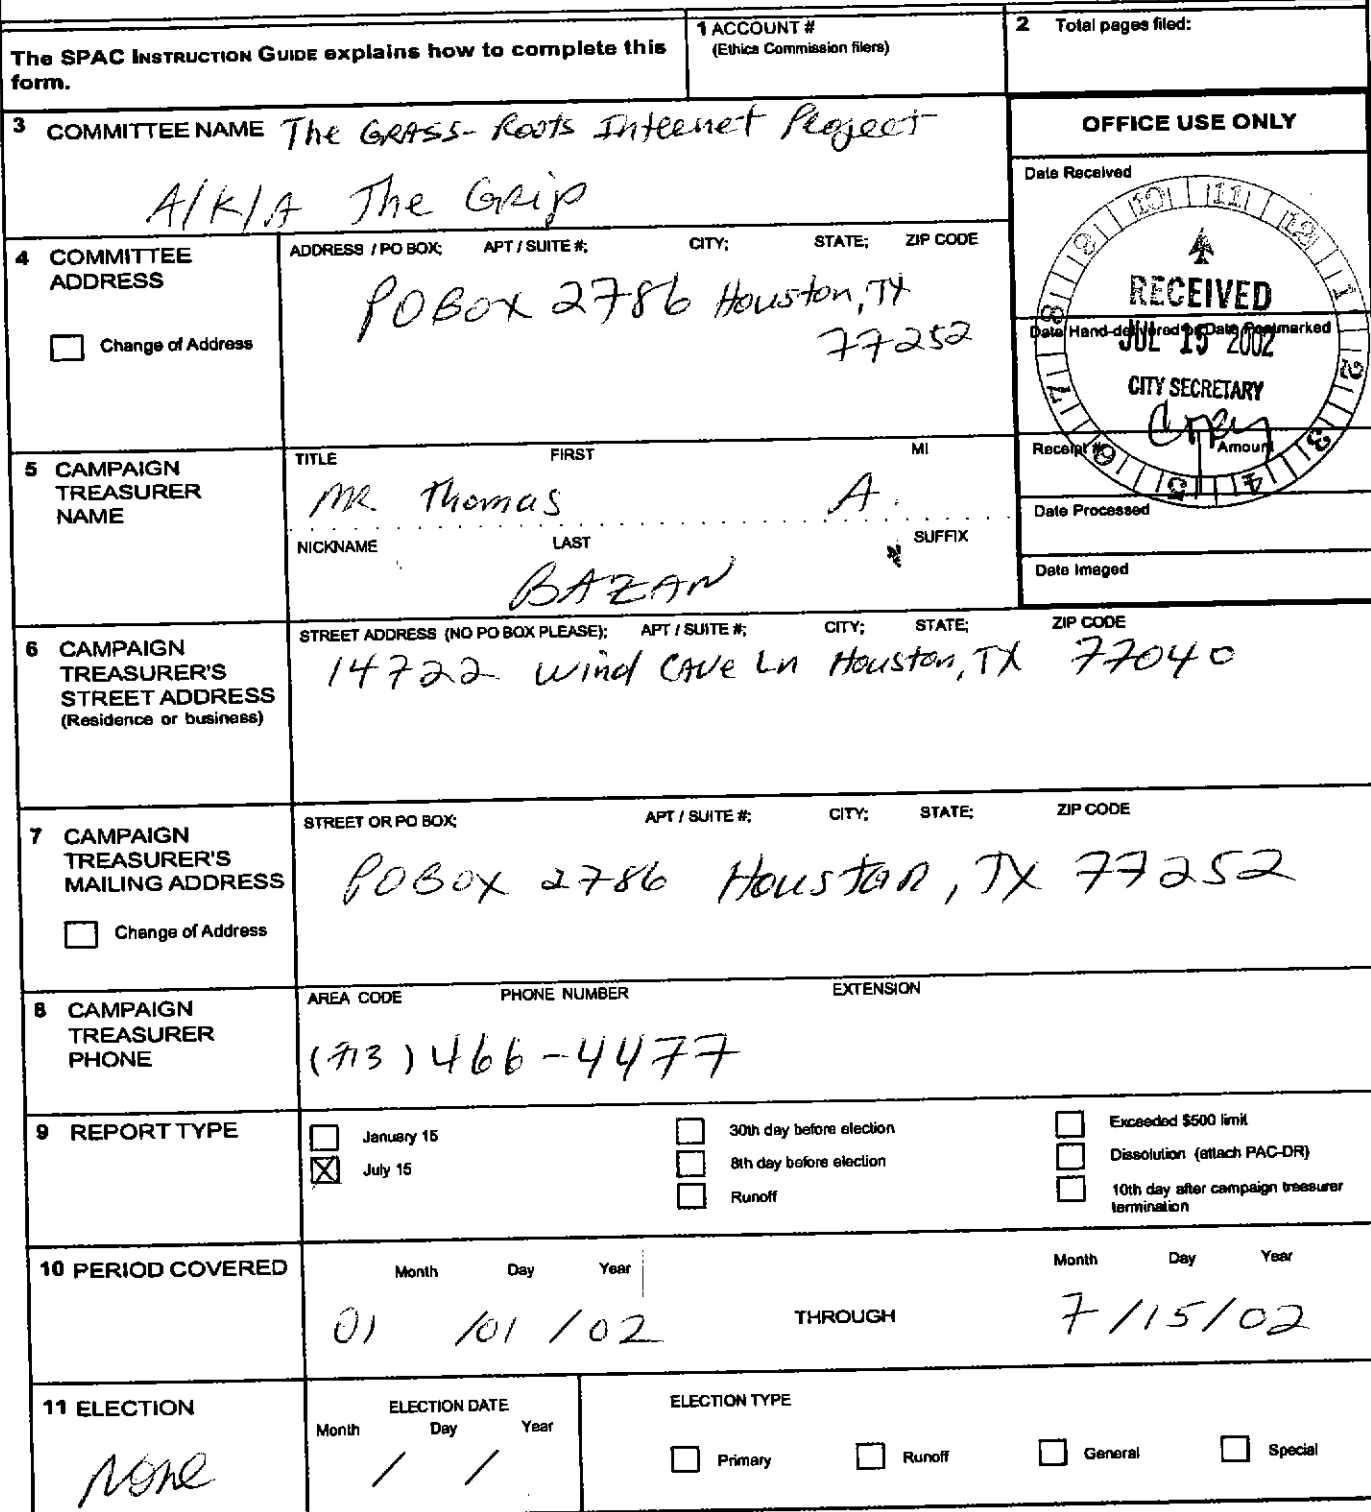 The SPAC INSTRUCTION GUIDE explains how to complete this form.
1 ACCOUNT #
(Ethics Commission filers)
2 Total pages filed:
3 COMMITTEE NAME The GRASS-Roots Internet Project
A/K/A The Grip
OFFICE USE ONLY
Date Received
10 11 12 1 2 3 4 5 6 7 8 9
RECEIVED
JUL 15 2002
CITY SECRETARY
Copy
Date Hand-delivered or Date Postmarked
Receipt #
Amount
Date Processed
Date Imaged
4 COMMITTEE
ADDRESS
Change of Address
ADDRESS / PO BOX; APT / SUITE #; CITY; STATE; ZIP CODE
POBOX 2786 Houston, TX
77252
5 CAMPAIGN
TREASURER
NAME
TITLE FIRST MI
MR. Thomas A.
NICKNAME LAST SUFFIX
BAZAN
6 CAMPAIGN
TREASURER'S
STREET ADDRESS
(Residence or business)
STREET ADDRESS (NO PO BOX PLEASE); APT / SUITE #; CITY; STATE; ZIP CODE
14722 Wind CAVE Ln Houston, TX 77040
7 CAMPAIGN
TREASURER'S
MAILING ADDRESS
Change of Address
STREET OR PO BOX; APT / SUITE #; CITY; STATE; ZIP CODE
POBOX 2786 Houston, TX 77252
8 CAMPAIGN
TREASURER
PHONE
AREA CODE PHONE NUMBER EXTENSION
(713) 466-4477
9 REPORT TYPE
January 15
July 15
30th day before election
8th day before election
Runoff
Exceeded $500 limit
Dissolution (attach PAC-DR)
10th day after campaign treasurer
termination
10 PERIOD COVERED
Month Day Year
01 /01 / 02
THROUGH
Month Day Year
7 / 15 / 02
11 ELECTION
None
ELECTION DATE
Month Day Year
/ /
ELECTION TYPE
Primary Runoff General Special